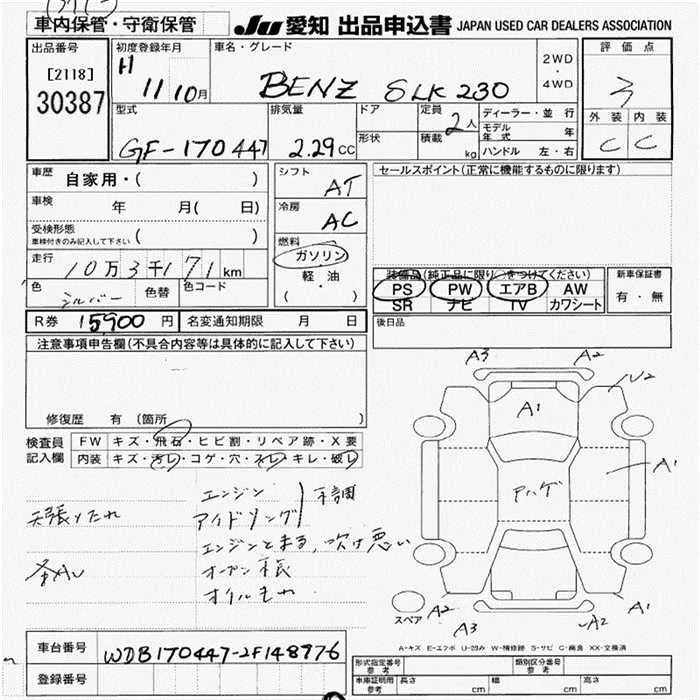 車内保管・守衛保管
JU 愛知 出品申込書 JAPAN USED CAR DEALERS ASSOCIATION
出品番号
[2118]
30387
初度登録年月
H 11 10月
車名・グレード
BENZ SLK 230
2WD
・
4WD
評価点
3
外装 内装
C C
型式
GF-170447
排気量
2.29 CC
ドア
形状
定員
2人
積載
kg
ディーラー・並行
モデル年式 年
ハンドル 左・右
車歴
自家用・( )
車検
年 月( 日)
受検形態
車検付きのみ記入して下さい ( )
走行
10万3千171 km
色
シルバー
色替
色コード
シフト
AT
冷房
AC
燃料
ガソリン
軽・油
( )
セールスポイント(正常に機能するものに限ります)
装備品(純正品に限り○をつけてください)
PS PW エアB AW
SR ナビ TV カワシート
新車保証書
有・無
R券 15900 円 名変通知期限 月 日
後日品
注意事項申告欄(不具合内容等は具体的に記入して下さい)
修復歴 有 〔箇所 〕
検査員
記入欄
FW キズ・飛石・ヒビ割・リペア跡・X要
内装 キズ・汚レ・コゲ・穴・スレ・キレ・破レ
エンジン
アイドリング 不調
天張りたれ
エンジンとまる、吹け悪い
オイルもれ
A3 A2
A1
A1
A2
A3
A2
A1
スペア
A-キズ E-エクボ U-凹み W-補修跡 S-サビ C-腐食 XX-交換済
車台番号 WDB170447-2F148976
登録番号
型式指定番号
参考
類別区分番号
参考
車庫証明用
参考
長さ cm 幅 cm 高さ cm